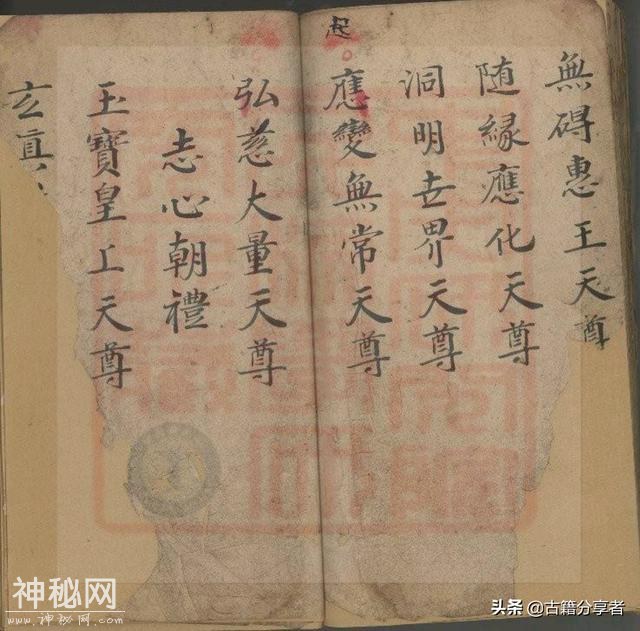 無碍惠王天尊
随緣應化天尊
洞明世界天尊
起
應變無常天尊
弘慈大量天尊
志心朝禮
玉寶皇上天尊
玄真
神秘网
www.shenmiwang.com
头条 @古籍分享者